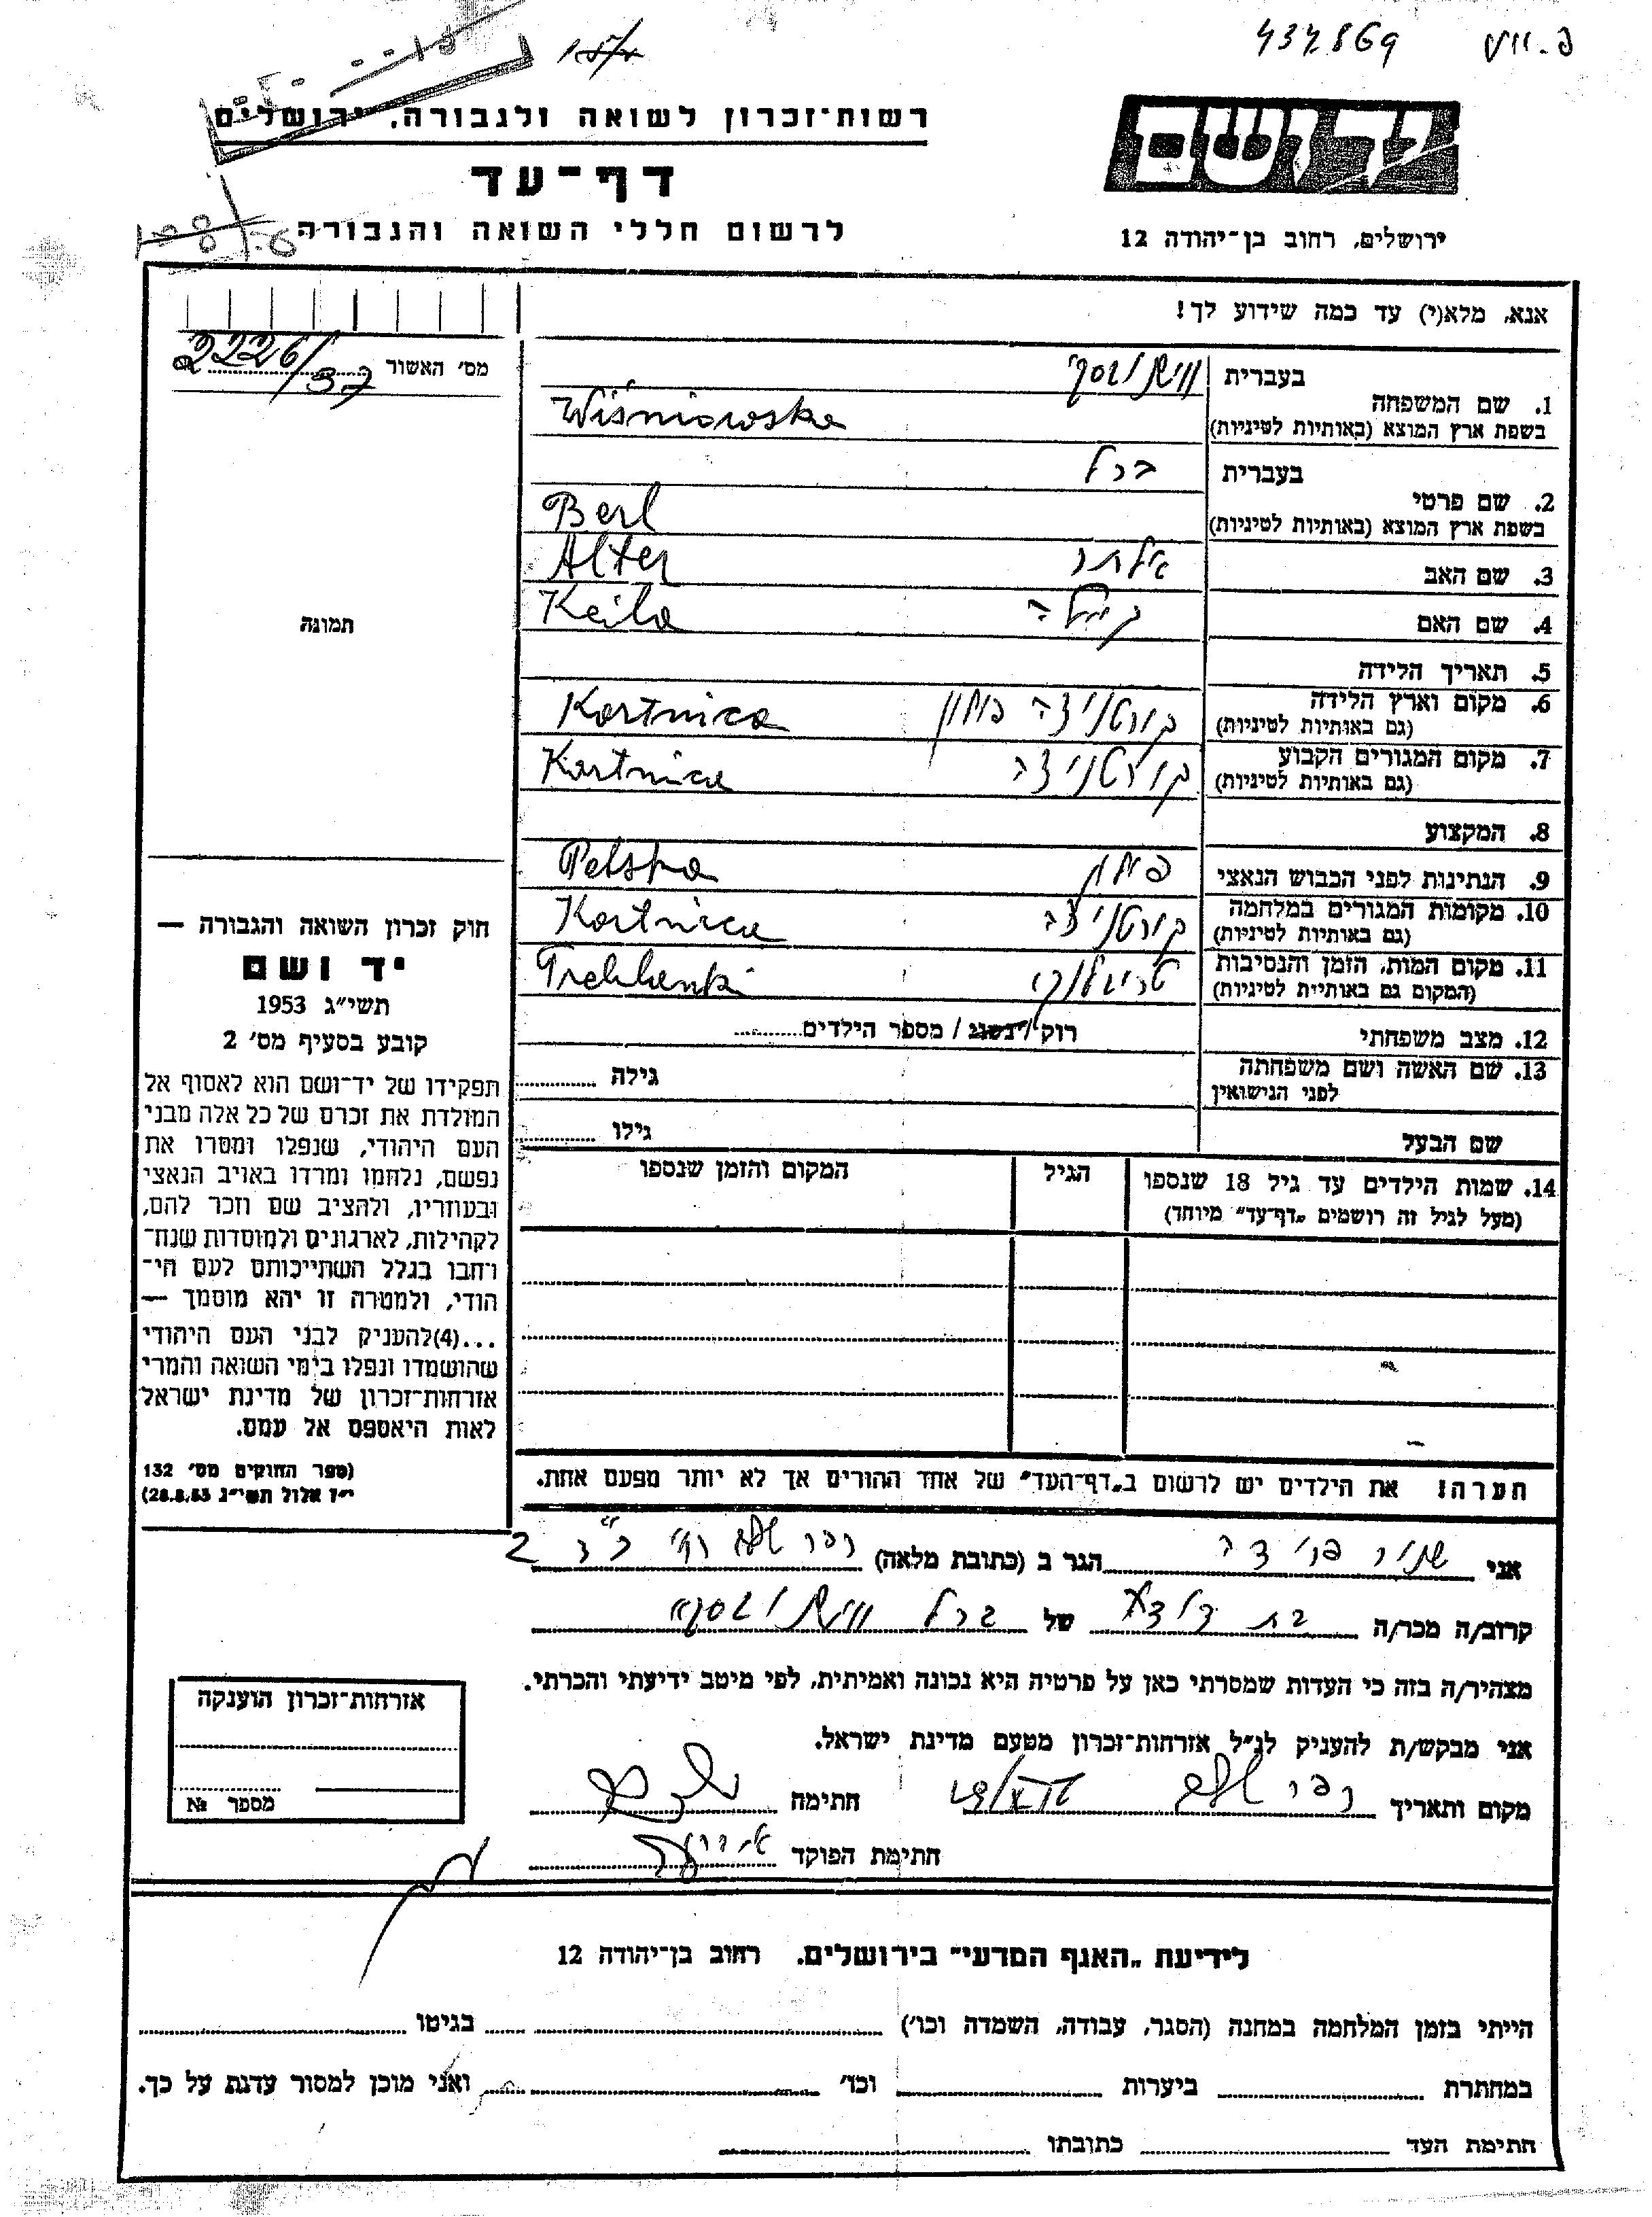 434869
יד ושם
ירושלים, רחוב בן־יהודה 12
רשות־זכרון לשואה ולגבורה, ירושלים
דף־עד
לרשום חללי השואה והגבורה
אנא, מלא(י) עד כמה שידוע לך!
מס׳ האשור 2226/37
תמונה
בעברית
1. שם המשפחה
בשפת ארץ המוצא (באותיות לטיניות) Wiśniowska
בעברית ברל
2. שם פרטי
בשפת ארץ המוצא (באותיות לטיניות) Berl
3. שם האב אלתר Alter
4. שם האם קיילה Keila
5. תאריך הלידה
6. מקום וארץ הלידה קורטניצה פולין Kortnica
(גם באותיות לטיניות)
7. מקום המגורים הקבוע קורטניצה Kortnica
(גם באותיות לטיניות)
8. המקצוע
9. הנתינות לפני הכבוש הנאצי פולין Polska
10. מקומות המגורים במלחמה קורטניצה Kortnica
(גם באותיות לטיניות)
11. מקום המות, הזמן והנסיבות
(המקום גם באותיית לטיניות)
12. מצב משפחתי רוק/נשוי/ מספר הילדים
13. שם האשה ושם משפחתה גילה
לפני הנישואין
שם הבעל גילו
14. שמות הילדים עד גיל 18 שנספו הגיל המקום והזמן שנספו
(מעל לגיל זה רושמים „דף־עד״ מיוחד)
הערה! את הילדים יש לרשום ב„דף־העד״ של אחד ההורים אך לא יותר מפעם אחת.
חוק זכרון השואה והגבורה —
יד ושם
תשי״ג 1953
קובע בסעיף מס׳ 2
תפקידו של יד־ושם הוא לאסוף אל
המולדת את זכרם של כל אלה מבני
העם היהודי, שנפלו ומסרו את
נפשם, נלחמו ומרדו באויב הנאצי
ובעוזריו, ולהציב שם וזכר להם,
לקהילות, לארגונים ולמוסדות שנח־
רבו בגלל השתייכותם לעם הי־
הודי, ולמטרה זו יהא מוסמך —
...(4)להעניק לבני העם היהודי
שהושמדו ונפלו בימי השואה והמרי
אזרחות־זכרון של מדינת ישראל
לאות היאספם אל עמם.
(ספר החוקים מס׳ 132
י״ז אלול תשי״ג 28.8.53)
אני הגר ב (כתובת מלאה)
קרוב/ה מכר/ה בת דודה של ברל
מצהיר/ה בזה כי העדות שמסרתי כאן על פרטיה היא נכונה ואמיתית, לפי מיטב ידיעתי והכרתי.
אני מבקש/ת להעניק לנ״ל אזרחות־זכרון מטעם מדינת ישראל.
מקום ותאריך חתימה
חתימת הפוקד
אזרחות־זכרון הוענקה
מספר №
לידיעת „האגף המדעי״ בירושלים. רחוב בן־יהודה 12
הייתי בזמן המלחמה במחנה (הסגר, עבודה, השמדה וכו׳) בגיטו
במחתרת ביערות וכו׳ ואני מוכן למסור עדות על כך.
חתימת העד כתובתו